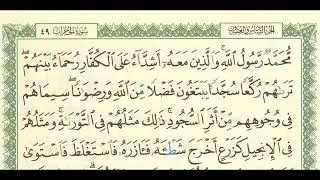 الجزء السادس والعشرون سورة الحجرات ٤٩
مُّحَمَّدٌ رَّسُولُ ٱللَّهِ ۚ وَٱلَّذِينَ مَعَهُۥٓ أَشِدَّآءُ عَلَى ٱلْكُفَّارِ رُحَمَآءُ بَيْنَهُمْ ۖ
تَرَىٰهُمْ رُكَّعًا سُجَّدًا يَبْتَغُونَ فَضْلًا مِّنَ ٱللَّهِ وَرِضْوَٰنًا ۖ سِيمَاهُمْ
فِى وُجُوهِهِم مِّنْ أَثَرِ ٱلسُّجُودِ ۚ ذَٰلِكَ مَثَلُهُمْ فِى ٱلتَّوْرَىٰةِ ۚ وَمَثَلُهُمْ
فِى ٱلْإِنجِيلِ كَزَرْعٍ أَخْرَجَ شَطْـَٔهُۥ فَـَٔازَرَهُۥ فَٱسْتَغْلَظَ فَٱسْتَوَىٰ